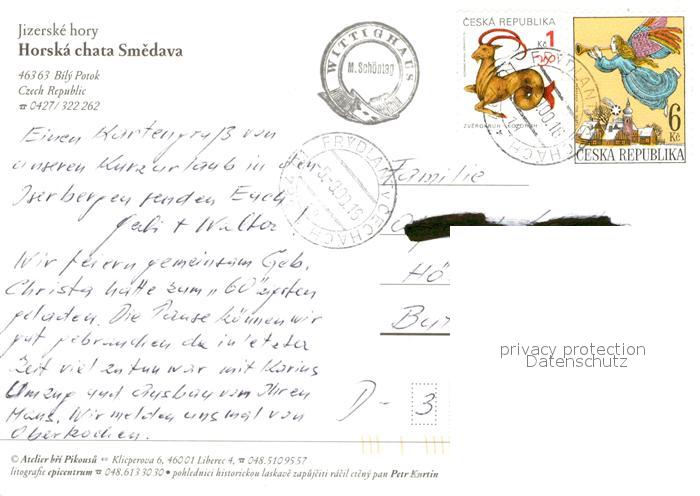 Jizerské hory
Horská chata Smědava
463 63 Bílý Potok
Czech Republic
☎ 0427/ 322 262
WITTIGHAUS
M. Schöntag
ČESKÁ REPUBLIKA
1
Kč
ZVĚROKRUH KOZOROH
6
Kč
ČESKÁ REPUBLIKA
FRÝDLANT V ČECHÁCH
Einen Kartengruß von
unseren Kurzurlaub in den
Iserbergen senden Euch
Gabi + Walter
Wir feiern gemeinsam Geb.
Christa hatte zum „60"zigsten
geladen. Die Pause können wir
gut gebrauchen da in letzter
Zeit viel zu tun war mit Karins
Umzug und Ausbau von Ihren
Haus. Wir melden uns mal von
Oberkochen.
Familie
Hö
Bu
D - 3
privacy protection
Datenschutz
© Atelier bří Pikousů Klicperova 6, 460 01 Liberec 4, ☎ 048.510 95 57
litografie epicentrum ☎ 048.613 30 30 • pohlednici historickou laskavě zapůjčiti ráčil ctěný pan Petr Kurtin